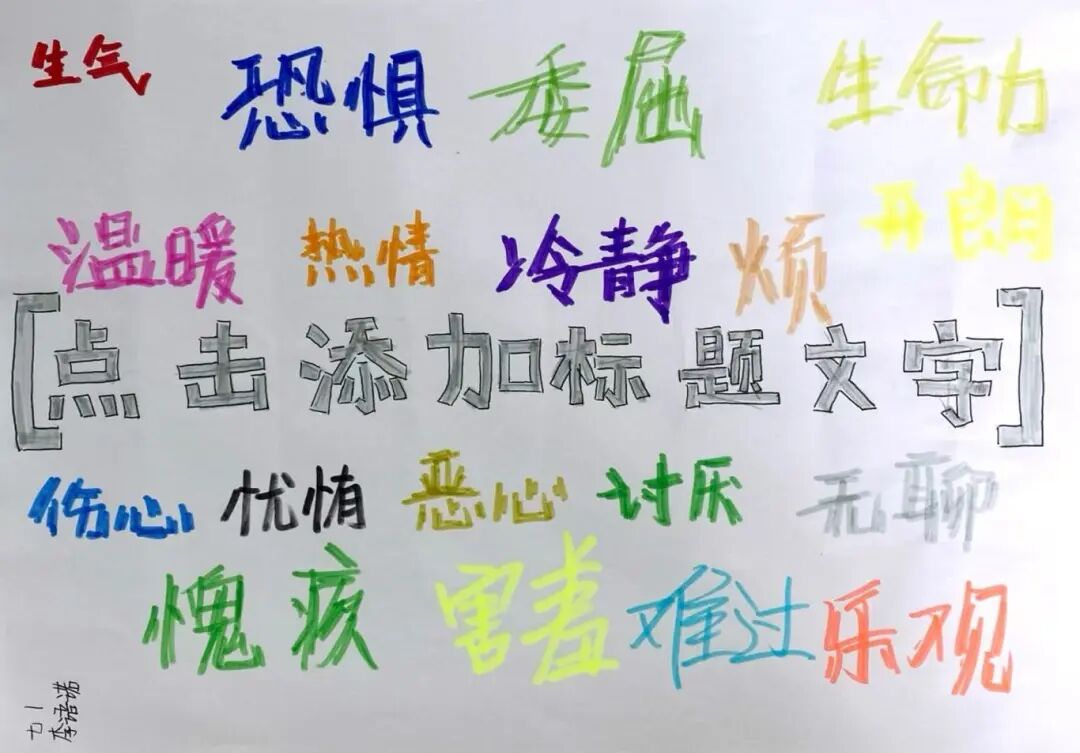 生气 恐惧 委屈 生命力
开朗
温暖 热情 冷静 烦
[点击添加标题文字]
伤心 忧 恶心 讨厌 无聊
愧 害羞 难过 乐观
李语诺